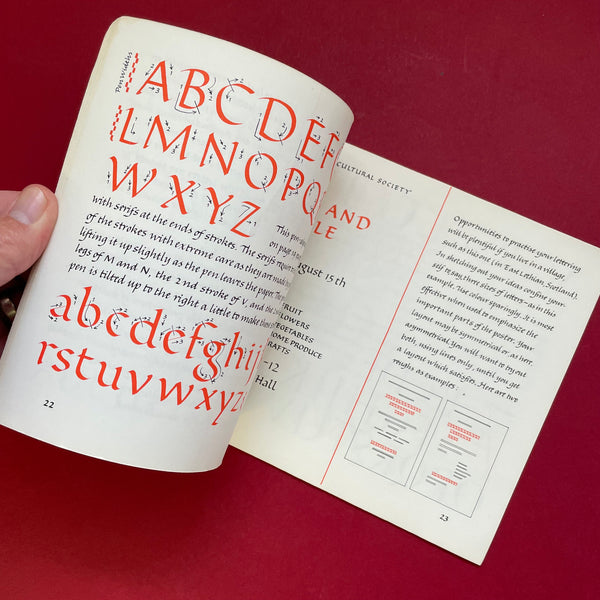 Pen Widths
ABCDEF
LMNOPQ
WXYZ
This pen
on page
with serifs at the ends of strokes. The serifs require
of the strokes with extreme care as they are made
lifting it up slightly as the pen leaves the paper. The
legs of M and N, the 2nd stroke of V, and the
pen is tilted up to the right a little to make these
abcdefghij
rstuvwxyz
22
CULTURAL SOCIETY
AND
LE
15th
FLOWERS
VEGETABLES
HOME PRODUCE
CRAFTS
-12
Hall
Opportunities to practise your lettering
will be plentiful if you live in a village,
such as this one (in East Lothian, Scotland).
In sketching out your ideas confine your-
self to say three sizes of letters–as in this
example. Use colour sparingly. It is most
effective when used to emphasize the
important parts of the poster. Your
layout may be symmetrical or, as here
asymmetrical. You will want to try out
both, using lines only, until you get
a layout which satisfies. Here are two
roughs as examples.
23